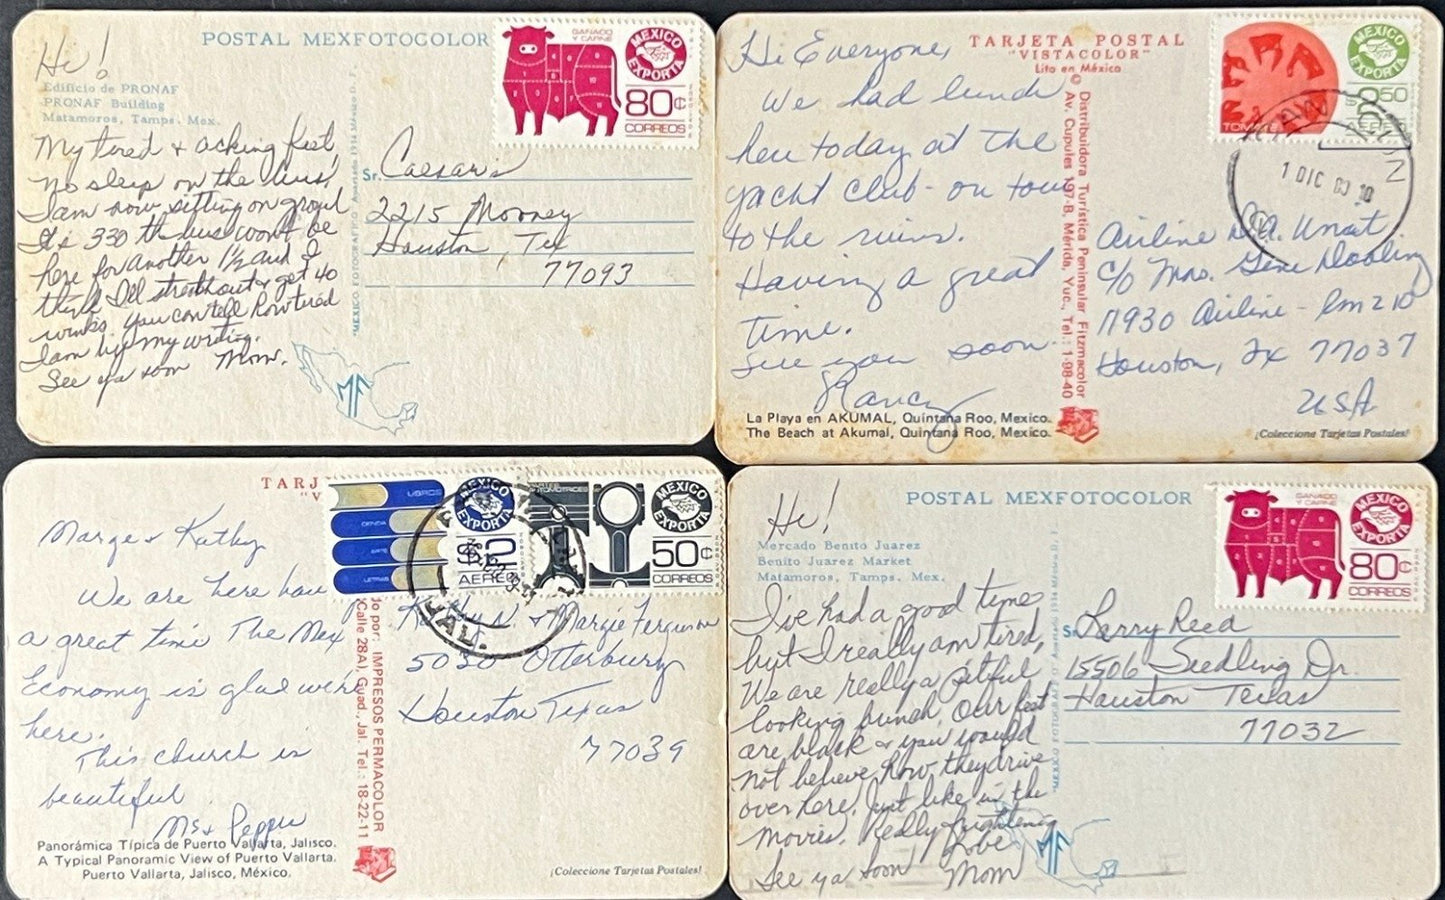 Hi!
POSTAL MEXFOTOCOLOR
GANADO
Y CARNE
MEXICO
EXPORTA
80¢
CORREOS
Edificio de PRONAF
PRONAF Building
Matamoros, Tamps. Mex.
My tired & aching feet,
no sleep on the bus,
I am now sitting on ground
It's 330 the bus won't be
here for another 1½ and I
think I'll stretch out & get 40
winks. You can tell how tired
I am by my writing.
See ya soon Mom.
Sr. Caesar's
2215 Mooney
Houston, Tex
77093
MF
Hi Everyone,
We had lunch
here today at the
yacht club - on tour
to the ruins.
Having a great
time.
See you soon.
Nancy
TARJETA POSTAL
"VISTACOLOR"
Lito en México
© Distribuidora Turística Peninsular Fitzmacolor
Av. Cupules 197-B, Mérida, Yuc., Tel.: 1-98-40
TOMATE
MEXICO
EXPORTA
1 DIC
Airline
c/o Mrs. Gene Dooling
11930 Airline - Rm 210
Houston, Tx 77037
USA
La Playa en AKUMAL, Quintana Roo, Mexico.
The Beach at Akumal, Quintana Roo, Mexico.
¡Coleccione Tarjetas Postales!
TARJ
"V
LIBROS
CIENCIA
ARTE
LETRAS
MEXICO
EXPORTA
AEREO
AUTOMOTRICES
MEXICO
EXPORTA
50¢
CORREOS
JAL.
Marge & Kathy
We are here hav
a great time The Mex
Economy is glad we're
here.
This church is
beautiful
Ms & Pepper
do por: IMPRESOS PERMACOLOR
(Calle 28A), Guad., Jal. Tel.: 18-22-11
Kathy & Margie Ferguson
5030 Otterbury
Houston Texas
77039
Panorámica Típica de Puerto Vallarta, Jalisco.
A Typical Panoramic View of Puerto Vallarta.
Puerto Vallarta, Jalisco, México.
¡Coleccione Tarjetas Postales!
Hi!
POSTAL MEXFOTOCOLOR
GANADO
Y CARNE
MEXICO
EXPORTA
80¢
CORREOS
Mercado Benito Juarez
Benito Juarez Market
Matamoros, Tamps. Mex.
I've had a good time
but I really am tired,
We are really a pitiful
looking bunch. Our feet
are black & you would
not believe how they drive
over here, Just like in the
movies. Really frightening
Love
See ya soon Mom
Sr. Larry Reed
15506 Seedling Dr.
Houston Texas
77032
MF